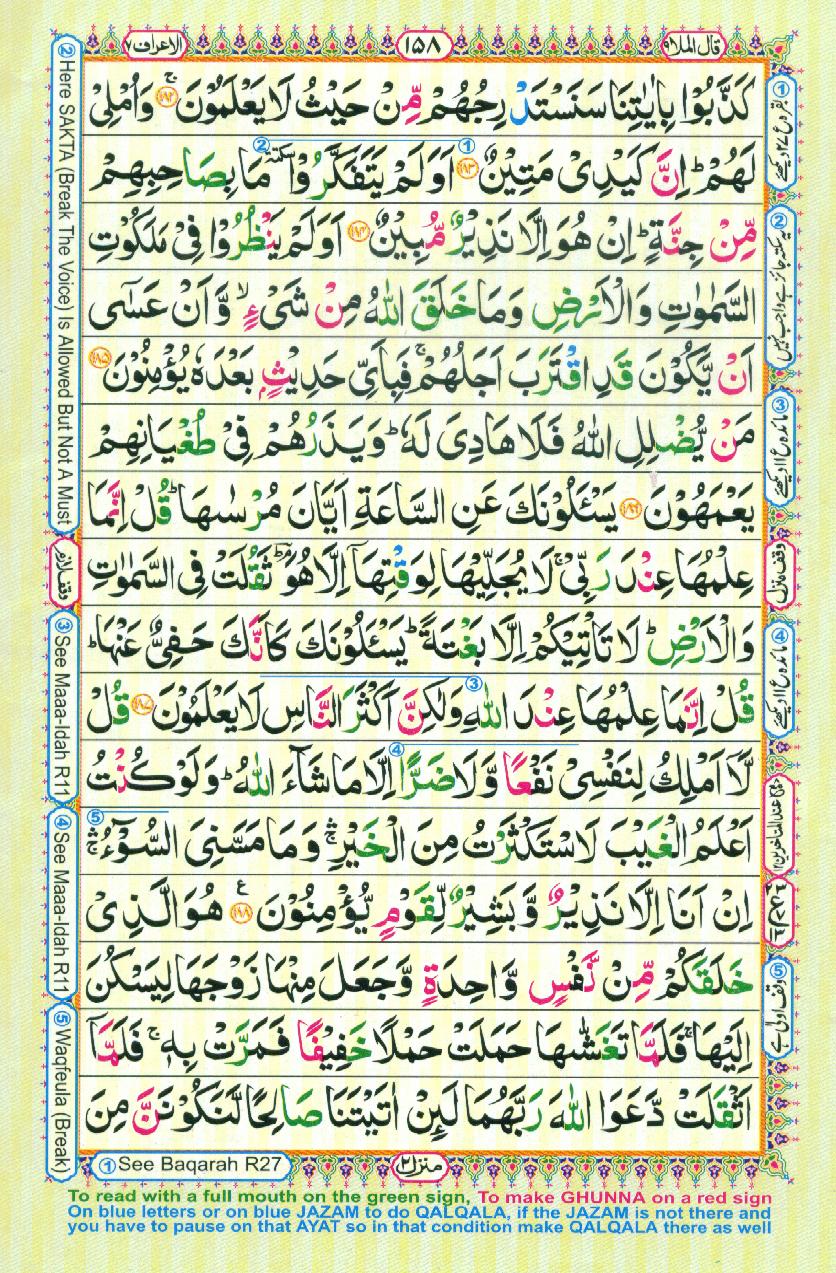 قال الملا ۹
۱۵۸
الاعراف ۷
كَذَّبُوْا بِاٰيٰتِنَا سَنَسْتَدْرِجُهُمْ مِّنْ حَيْثُ لَا يَعْلَمُوْنَ ۚ ۝۱۸۲ وَاُمْلِىْ
لَهُمْ ؕ اِنَّ كَيْدِىْ مَتِيْنٌ ۝۱۸۳ اَوَلَمْ يَتَفَكَّرُوْا ٚ مَا بِصَاحِبِهِمْ
مِّنْ جِنَّةٍ ؕ اِنْ هُوَ اِلَّا نَذِيْرٌ مُّبِيْنٌ ۝۱۸۴ اَوَلَمْ يَنْظُرُوْا فِىْ مَلَكُوْتِ
السَّمٰوٰتِ وَالْاَرْضِ وَمَا خَلَقَ اللّٰهُ مِنْ شَىْءٍ ۙ وَّاَنْ عَسٰٓى
اَنْ يَّكُوْنَ قَدِ اقْتَرَبَ اَجَلُهُمْ ۚ فَبِاَىِّ حَدِيْثٍۢ بَعْدَهٗ يُؤْمِنُوْنَ ۝۱۸۵
مَنْ يُّضْلِلِ اللّٰهُ فَلَا هَادِىَ لَهٗ ؕ وَيَذَرُهُمْ فِىْ طُغْيَانِهِمْ
يَعْمَهُوْنَ ۝۱۸۶ يَسْـَٔلُوْنَكَ عَنِ السَّاعَةِ اَيَّانَ مُرْسٰىهَا ؕ قُلْ اِنَّمَا
عِلْمُهَا عِنْدَ رَبِّىْ ۚ لَا يُجَلِّيْهَا لِوَقْتِهَاۤ اِلَّا هُوَ ؔؕ ثَقُلَتْ فِى السَّمٰوٰتِ
وَالْاَرْضِ ؕ لَا تَاْتِيْكُمْ اِلَّا بَغْتَةً ؕ يَسْـَٔلُوْنَكَ كَاَنَّكَ حَفِىٌّ عَنْهَا ؕ
قُلْ اِنَّمَا عِلْمُهَا عِنْدَ اللّٰهِ وَلٰكِنَّ اَكْثَرَ النَّاسِ لَا يَعْلَمُوْنَ ۝۱۸۷ قُلْ
لَّاۤ اَمْلِكُ لِنَفْسِىْ نَفْعًا وَّلَا ضَرًّا اِلَّا مَا شَآءَ اللّٰهُ ؕ وَلَوْ كُنْتُ
اَعْلَمُ الْغَيْبَ لَاسْتَكْثَرْتُ مِنَ الْخَيْرِ ۛۚ وَمَا مَسَّنِىَ السُّوْٓءُ ۛۚ
اِنْ اَنَا اِلَّا نَذِيْرٌ وَّبَشِيْرٌ لِّقَوْمٍ يُّؤْمِنُوْنَ ۝۱۸۸ ع هُوَ الَّذِىْ
خَلَقَكُمْ مِّنْ نَّفْسٍ وَّاحِدَةٍ وَّجَعَلَ مِنْهَا زَوْجَهَا لِيَسْكُنَ
اِلَيْهَا ۚ فَلَمَّا تَغَشّٰىهَا حَمَلَتْ حَمْلًا خَفِيْفًا فَمَرَّتْ بِهٖ ۚ فَلَمَّاۤ
اَثْقَلَتْ دَّعَوَا اللّٰهَ رَبَّهُمَا لَئِنْ اٰتَيْتَنَا صَالِحًا لَّنَكُوْنَنَّ مِنَ
② Here SAKTA (Break The Voice) Is Allowed But Not A Must
وقف لازم
③ See Maaa-Idah R11
④ See Maaa-Idah R11
⑤ Waqfeula (Break)
① See Baqarah R27
منزل ۲
To read with a full mouth on the green sign, To make GHUNNA on a red sign
On blue letters or on blue JAZAM to do QALQALA, if the JAZAM is not there and
you have to pause on that AYAT so in that condition make QALQALA there as well